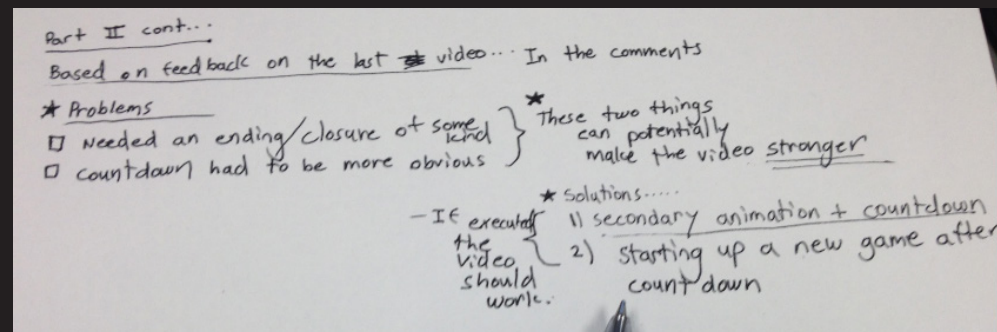 Part II cont...
Based on feedback on the last video... In the comments
★ Problems
□ Needed an ending/closure of some kind
□ countdown had to be more obvious
★ These two things
can potentially
make the video stronger
★ Solutions.....
1) secondary animation + countdown
2) starting up a new game after
countdown
- If executed
the
video
should
work.